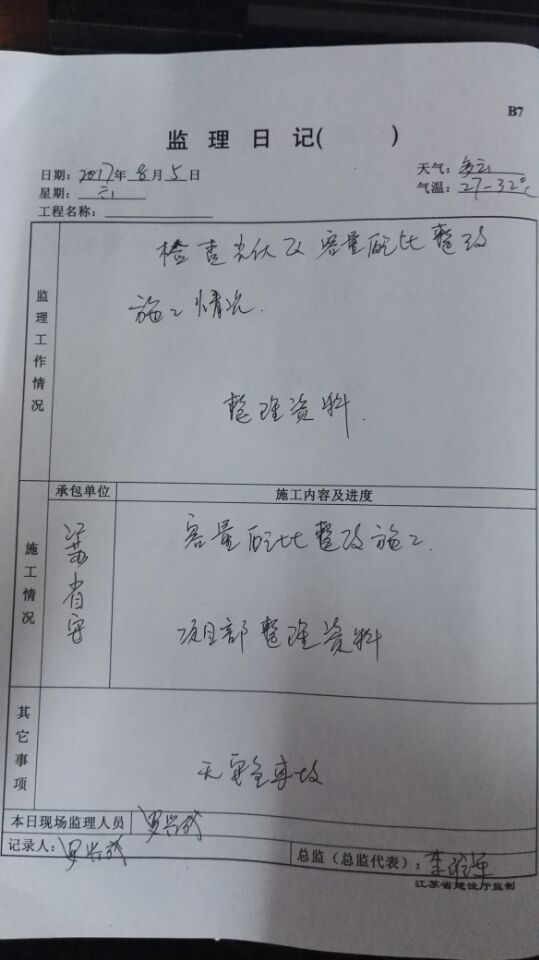 B7
监 理 日 记(        )
日期：2017年8月5日
天气：多云
星期：六
气温：27-32℃
工程名称：
监理工作情况
检查光伏区容量配比整改
施工情况.
整理资料.
承包单位
施工内容及进度
施工情况
江苏省安
容量配比整改施工.
项目部整理资料
其它事项
无安全事故
本日现场监理人员
记录人：
总监（总监代表）：
江苏省建设厅监制